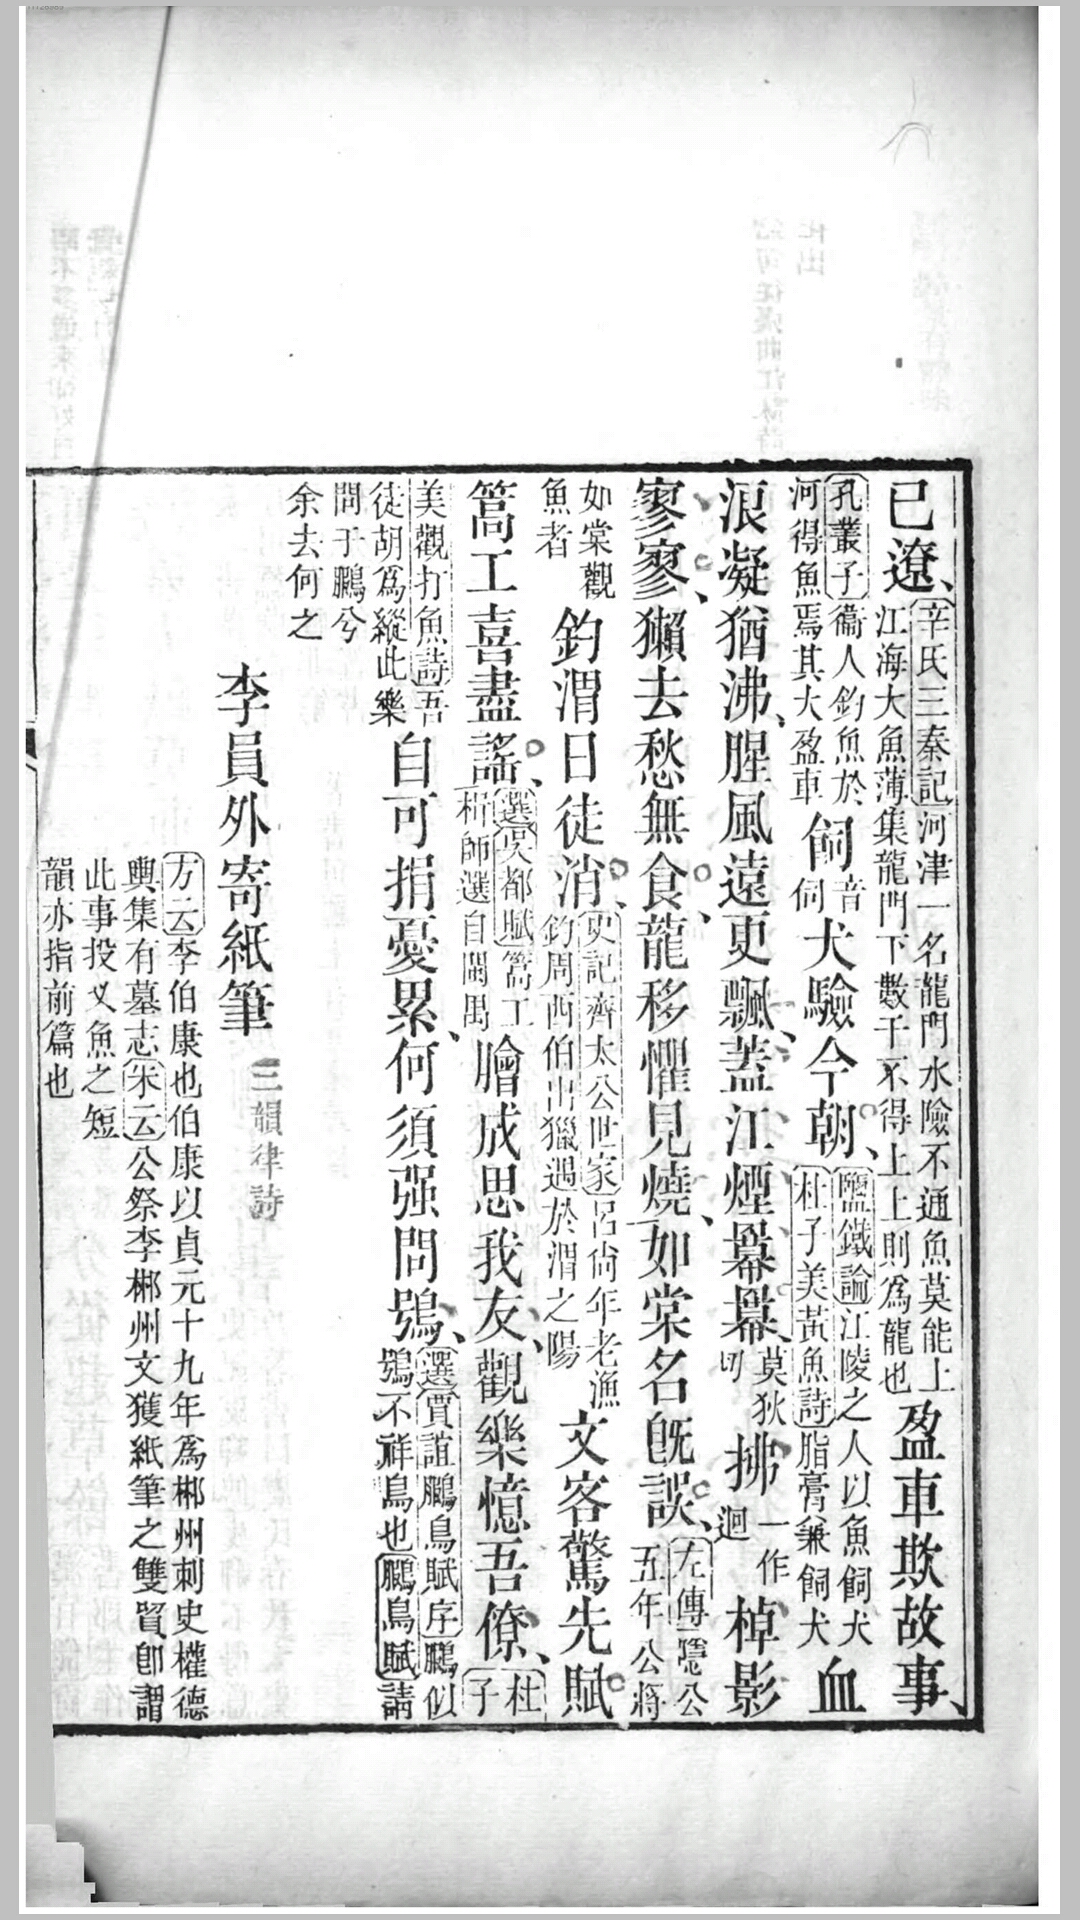 已遼辛氏三秦記河津一名龍門水險不通魚莫能上江海大魚薄集龍門下數千不得上上則爲龍也盈車欺故事
孔叢子衞人釣魚於河得魚焉其大盈車飼音伺犬驗今朝鹽鐵論江陵之人以魚飼犬杜子美黃魚詩脂膏兼飼犬血
浪凝猶沸腥風遠更飄蓋江煙羃羃莫狄切拂一作迴棹影
寥寥獺去愁無食龍移懼見燒如棠名旣誤左傳隱公五年公將
如棠觀魚者釣渭日徒消史記齊太公世家呂尙年老漁釣周西伯出獵遇於渭之陽文客驚先賦
篙工喜盡謠選吳都賦篙工楫師選自閩禺膾成思我友觀樂憶吾僚杜子
美觀打魚詩吾徒胡爲縱此樂自可捐憂累何須强問鴞選賈誼鵩鳥賦序鵩似鴞不祥鳥也鵩鳥賦請
問于鵩兮余去何之
李員外寄紙筆三韻律詩
方云李伯康也伯康以貞元十九年爲郴州刺史權德
輿集有墓志朱云公祭李郴州文獲紙筆之雙貿卽謂
此事投叉魚之短
韻亦指前篇也